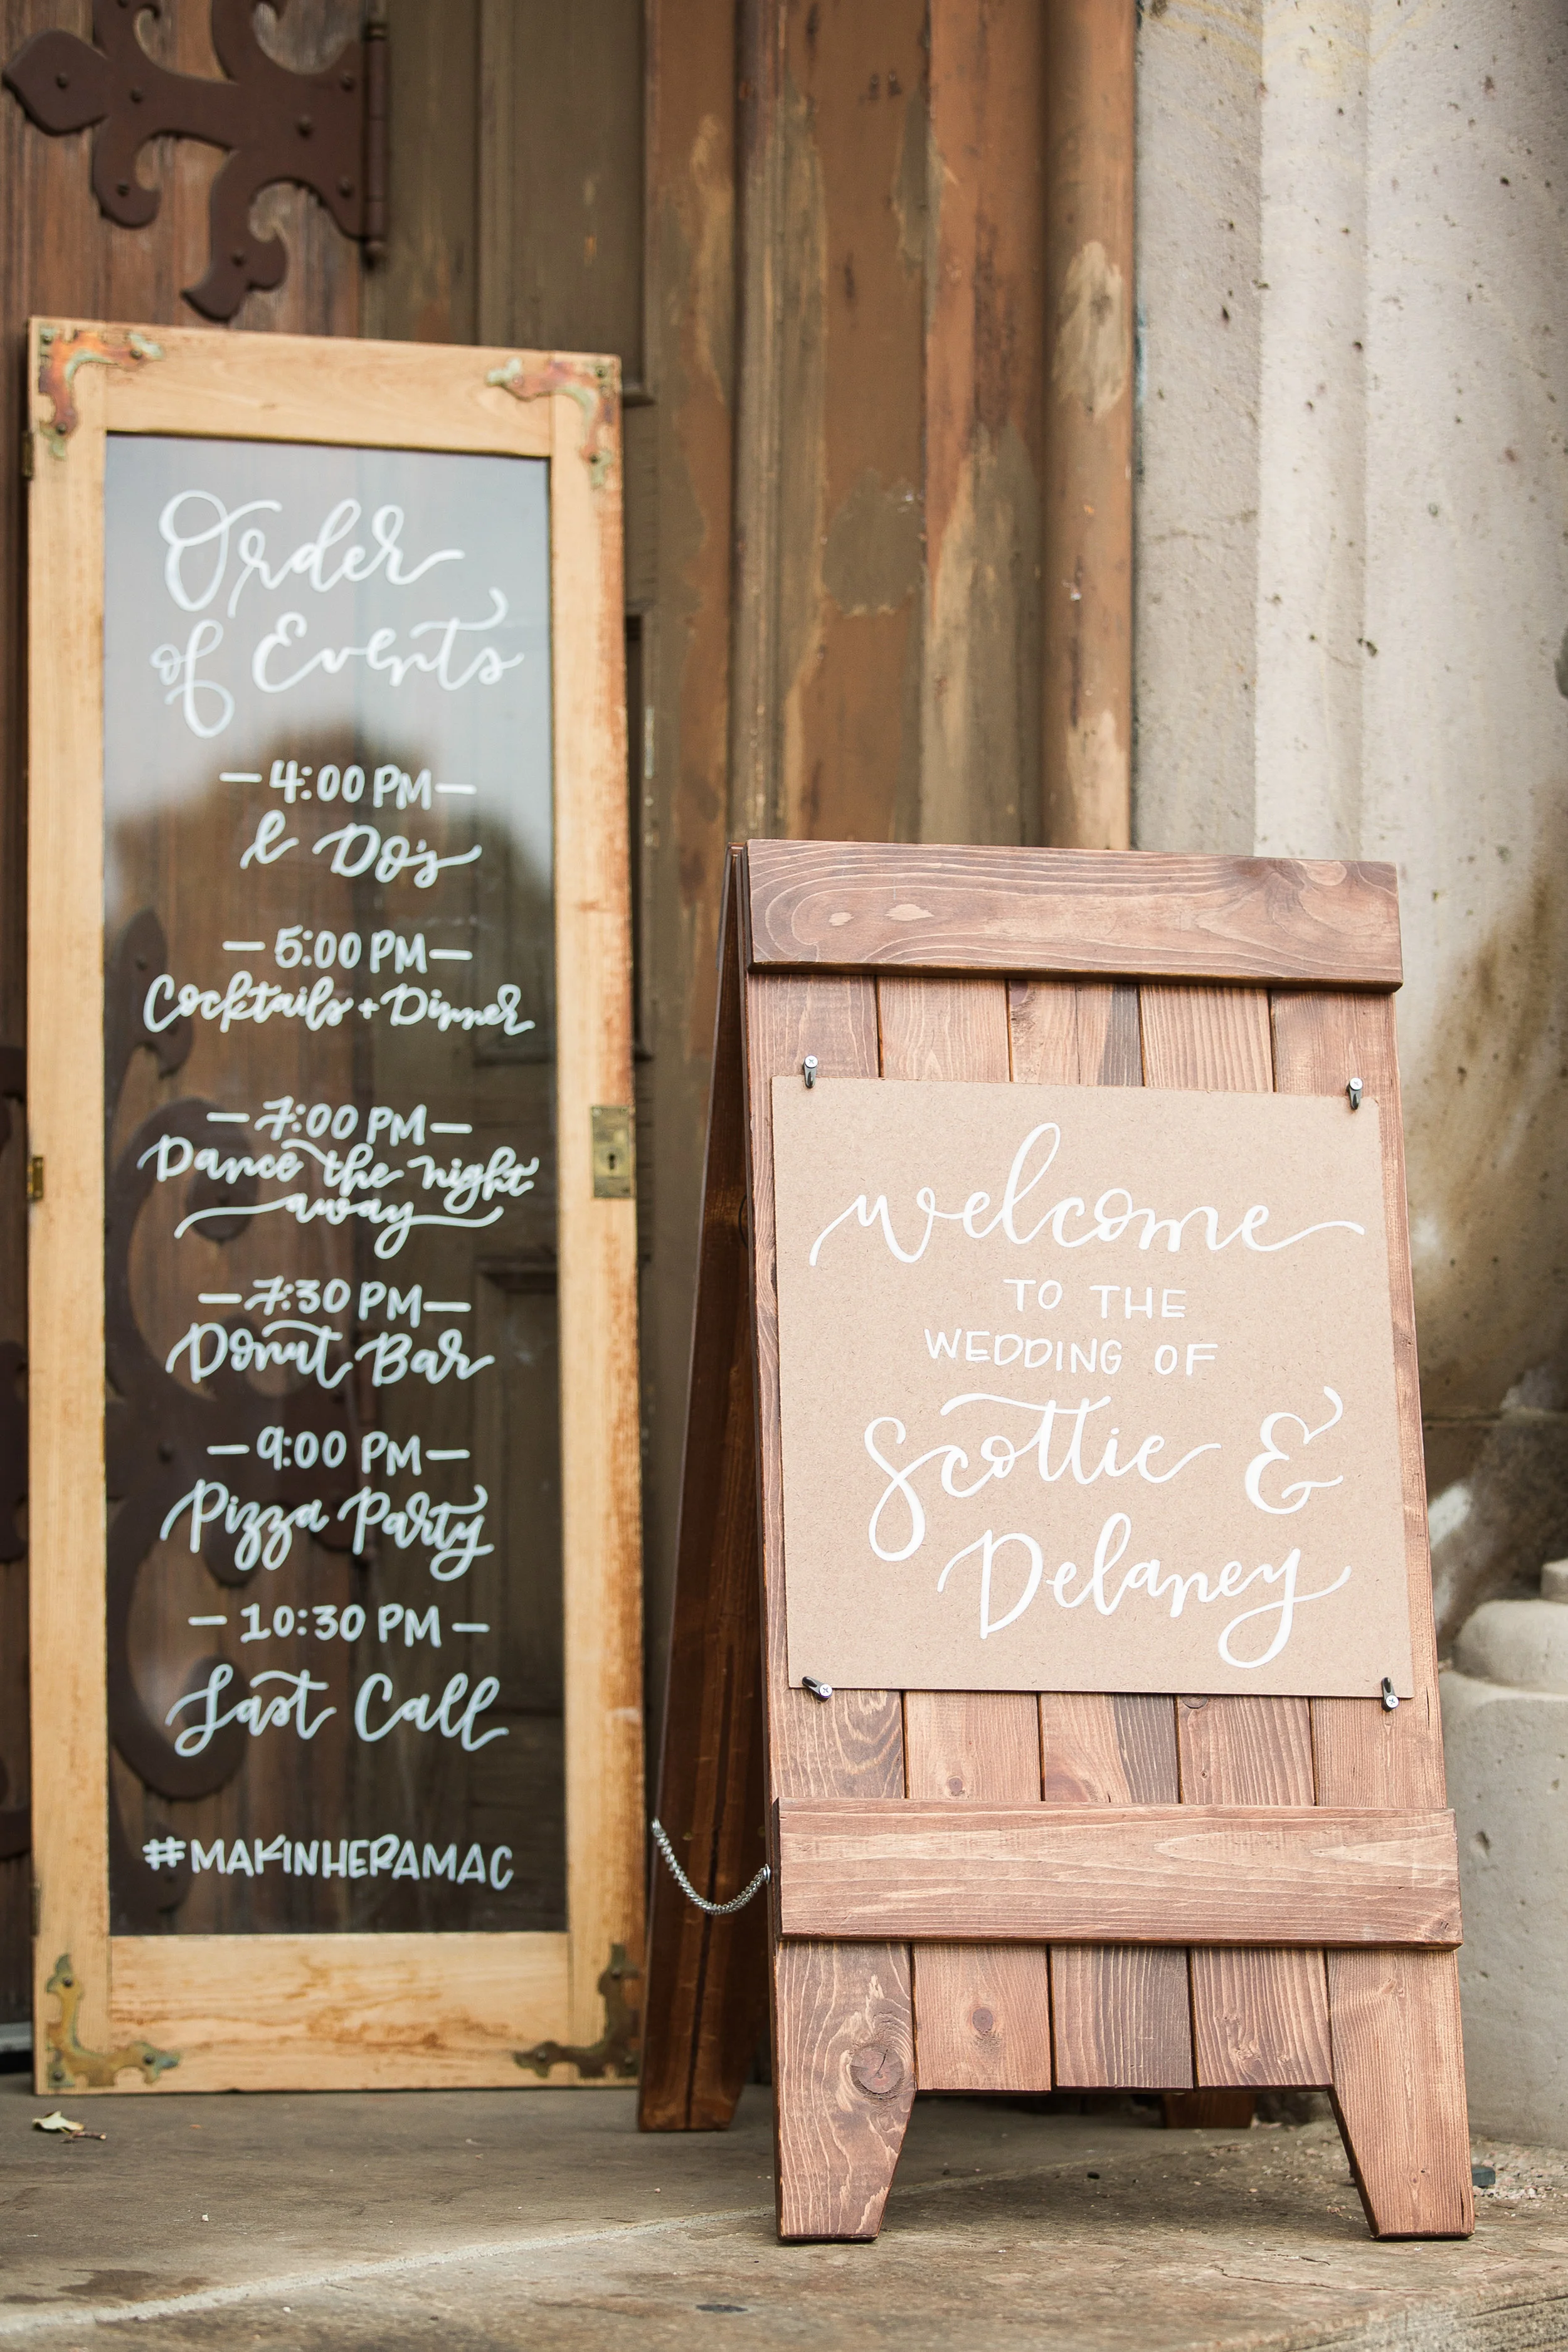 Order
of Events
—4:00 PM—
I Do's
—5:00 PM—
Cocktails + Dinner
—7:00 PM—
Dance the night
away
—7:30 PM—
Donut Bar
—9:00 PM—
Pizza Party
—10:30 PM—
Last Call
#MAKINHERAMAC
welcome
TO THE
WEDDING OF
Scottie &
Delaney